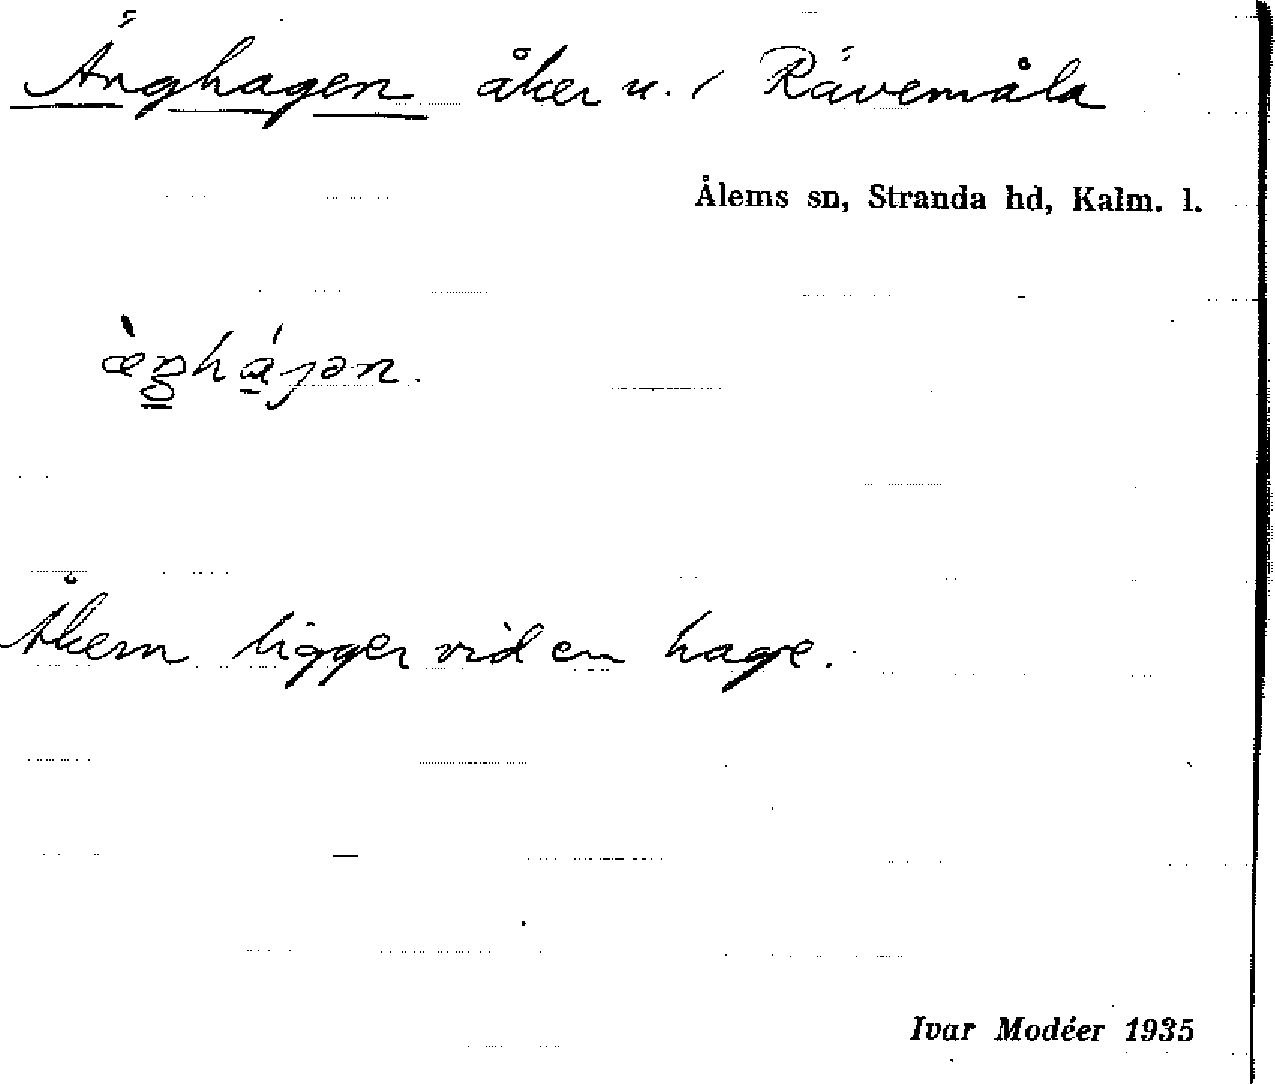 Änghagen åker u. / Rävemåla
Ålems sn, Stranda hd, Kalm. l.
Åkern ligger vid en hage.
Ivar Modéer 1935